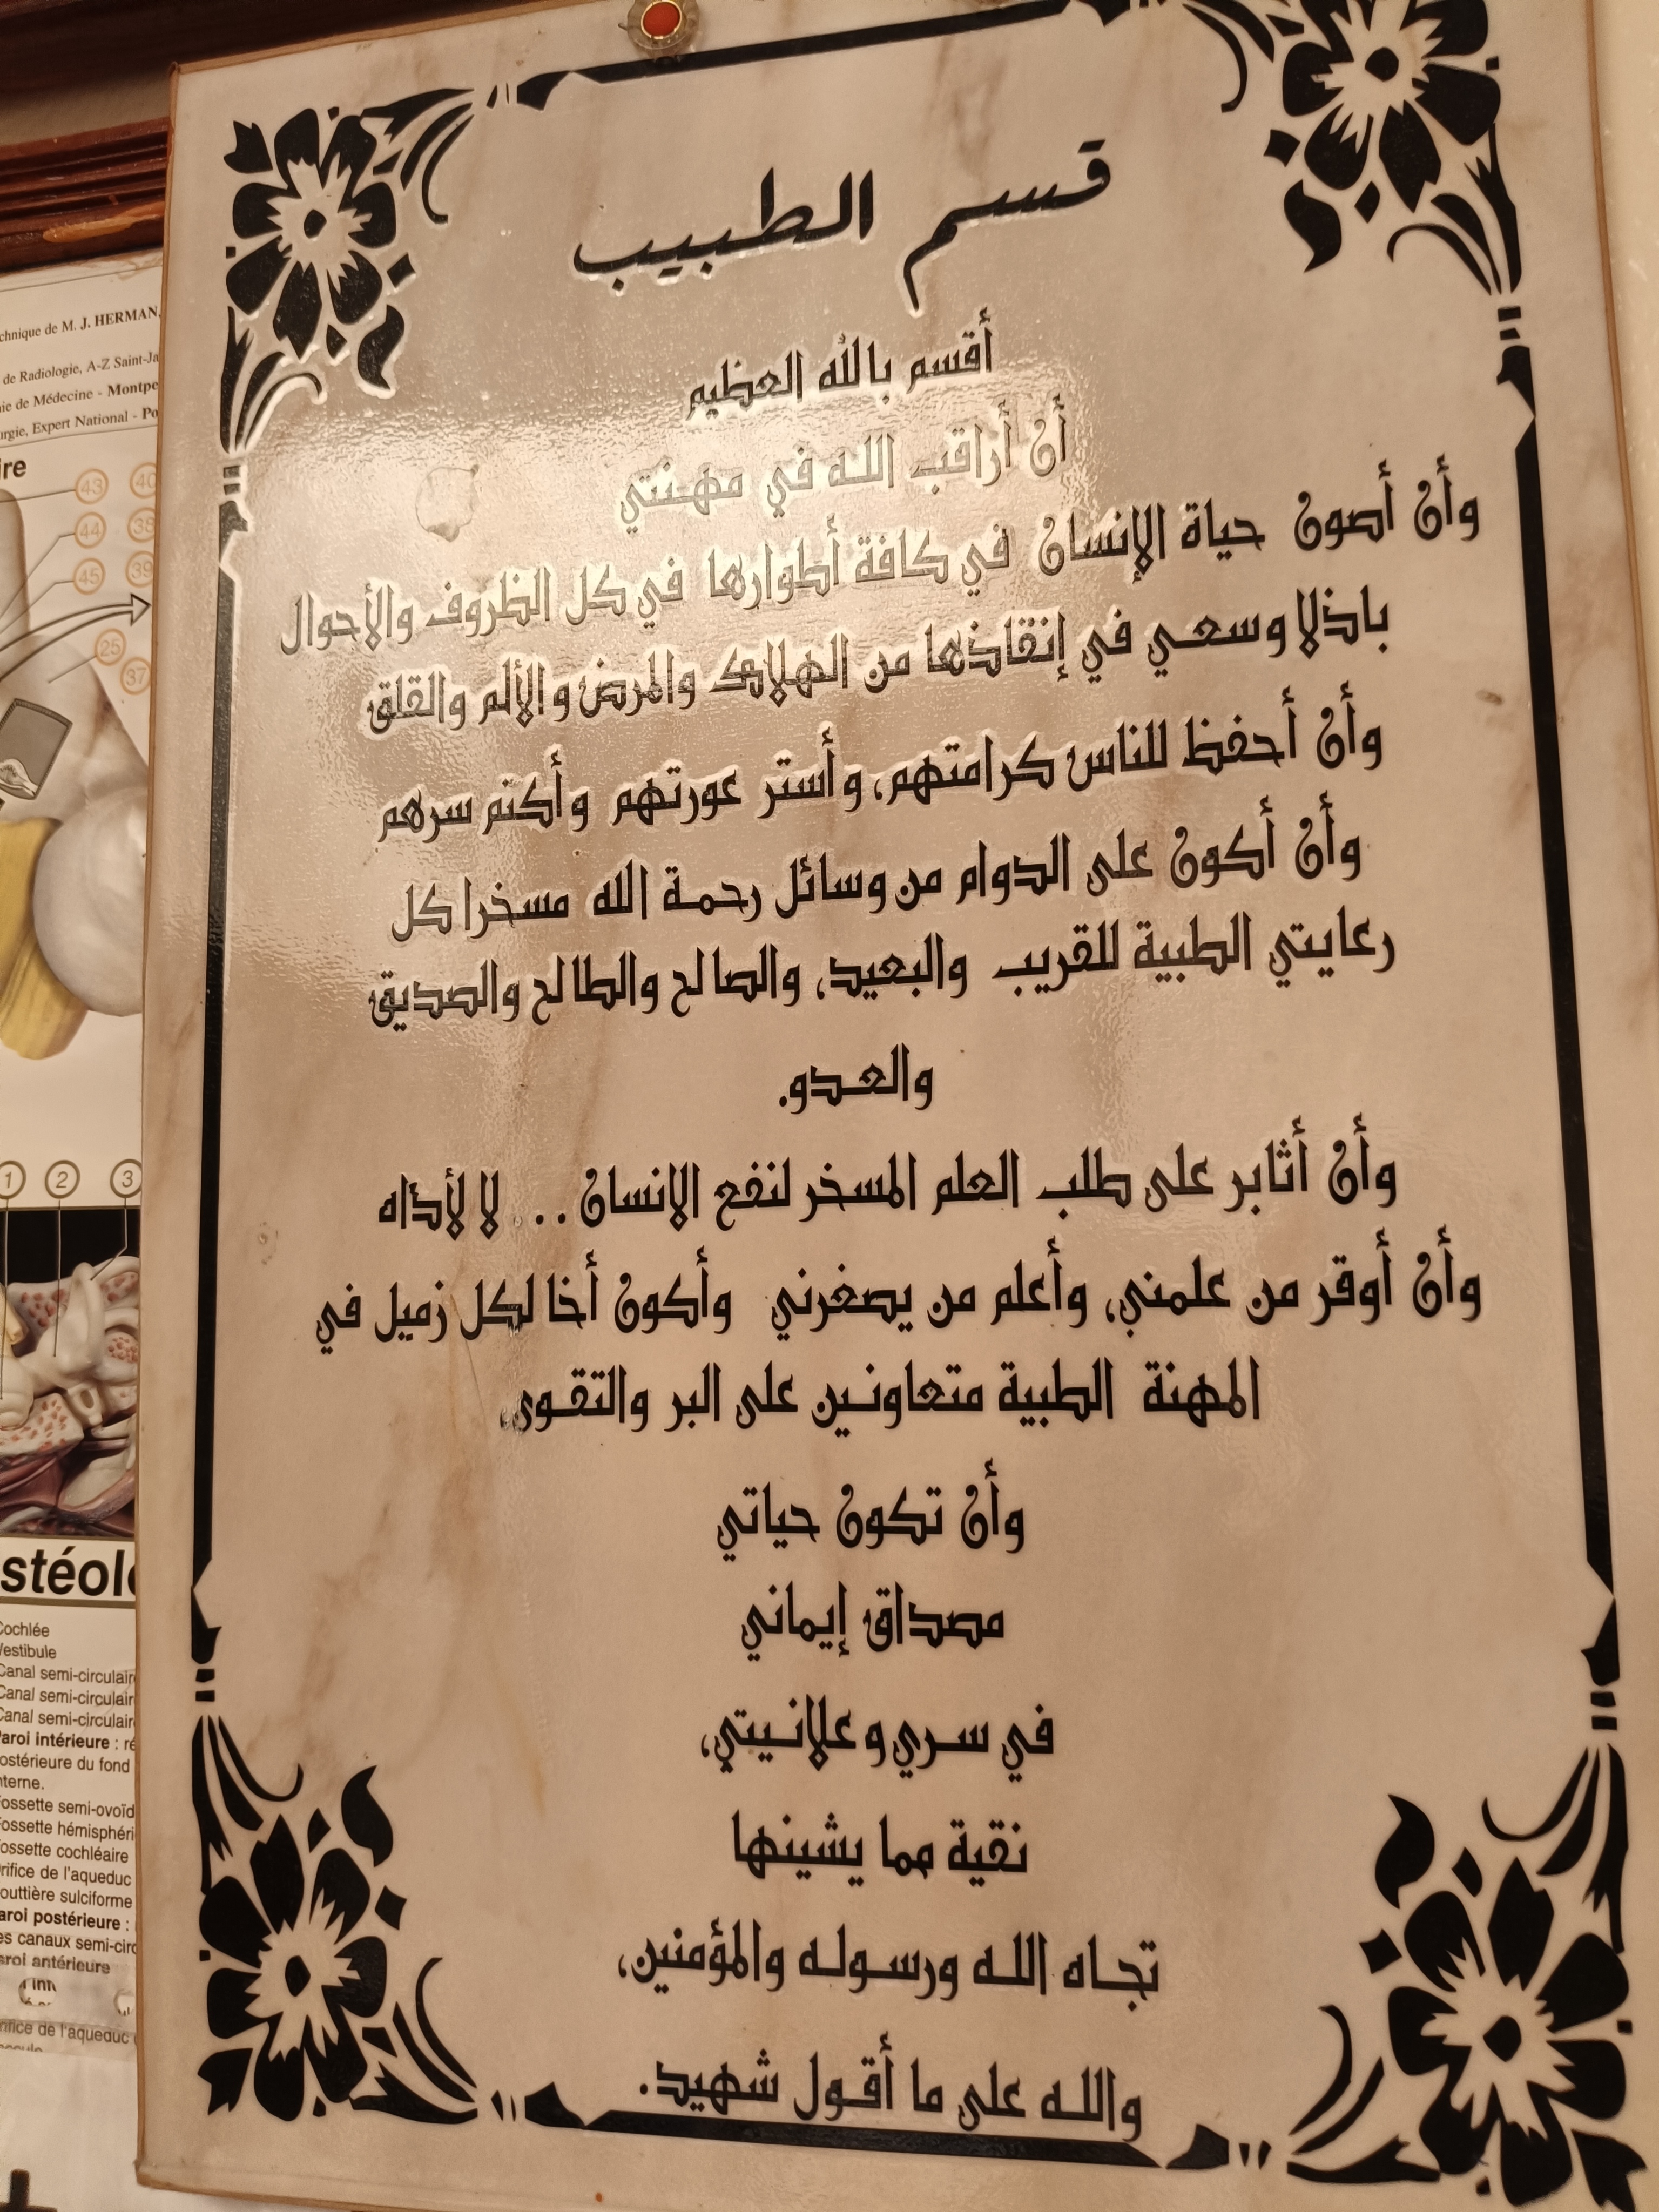 قسم الطبيب
أقسم بالله العظيم
أن أراقب الله في مهنتي
وأن أصون حياة الإنسان في كافة أطوارها في كل الظروف والأحوال
باذلا وسعي في إنقاذها من الهلاك والمرض والألم والقلق
وأن أحفظ للناس كرامتهم، وأستر عورتهم وأكتم سرهم
وأن أكون على الدوام من وسائل رحمة الله مسخرا كل
رعايتي الطبية للقريب والبعيد، والصالح والطالح والصديق
والعدو.
وأن أثابر على طلب العلم المسخر لنفع الانسان.. لا لأذاه
وأن أوقر من علمني، وأعلم من يصغرني وأكون أخا لكل زميل في
المهنة الطبية متعاونين على البر والتقوى،
وأن تكون حياتي
مصداق إيماني
في سري وعلانيتي،
نقية مما يشينها
تجاه الله ورسوله والمؤمنين،
والله على ما أقول شهيد.
chnique de M. J. HERMAN,
de Radiologie, A-Z Saint-Ja
ie de Médecine - Montpe
urgie, Expert National - Po
ire
43 40
44 38
45 39
25
37
1 2 3
stéolo
Cochlée
Vestibule
Canal semi-circulair
Canal semi-circulair
Canal semi-circulair
Paroi intérieure : ré
ostérieure du fond
nterne.
Fossette semi-ovoïd
Fossette hémisphéri
Fossette cochléaire
rifice de l'aqueduc
outtière sulciforme
aroi postérieure :
es canaux semi-circ
aroi antérieure
rifice de l'aqueduc